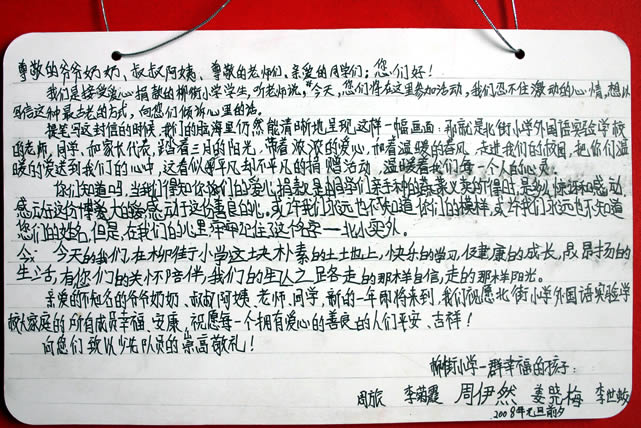 尊敬的爷爷奶奶、叔叔阿姨、尊敬的老师们、亲爱的同学们：您们好！
我们是接受爱心捐款的柳街小学学生，听老师说，今天，您们将在这里参加活动，我们忍不住激动的心情，想以
写信这种最古老的方式，向您们倾诉心里的话。
提笔写这封信的时候，我们的脑海里仍然能清晰地呈现这样一幅画面：那就是北街小学外国语实验学校
的老师、同学、和家长代表，踏着三月的阳光，带着浓浓的爱心，和着温暖的春风，走进我们的校园，把你们温
暖的爱送到我们的心中，这看似平凡却不平凡的捐赠活动，温暖着我们每一个人的心灵。
您们知道吗，当我们得知你们的爱心捐款是由同学们亲手种的蔬菜义卖所得时，是多么惊讶和感动，
感动在这份博爱大的 感动于这份善良的心。或许我们永远也不知道你们的模样，或许我们永远也不知道
您们的姓名，但是，在我们的心里牢牢记住了这个名字——北小实外。
今天的我们，在柳街子小学这土块朴素的土地上，快乐的学习，健康的成长，昂昂扬的
生活，有您们的关怀陪伴，我们的人之足各走的那样自信，走的那样阳光。
亲爱的不知名的爷爷奶奶、叔叔阿姨、老师、同学，新的一年即将来到，我们祝愿北街小学外国语实验学
校大家庭的所有成员幸福、安康，祝愿每一个拥有爱心的善良的人们平安、吉祥！
向您们致以少先队员的崇高敬礼！
柳街小学一群幸福的孩子：
周旅 李菊霞 周伊然 姜晓梅 李世蛟
2008年元旦前夕